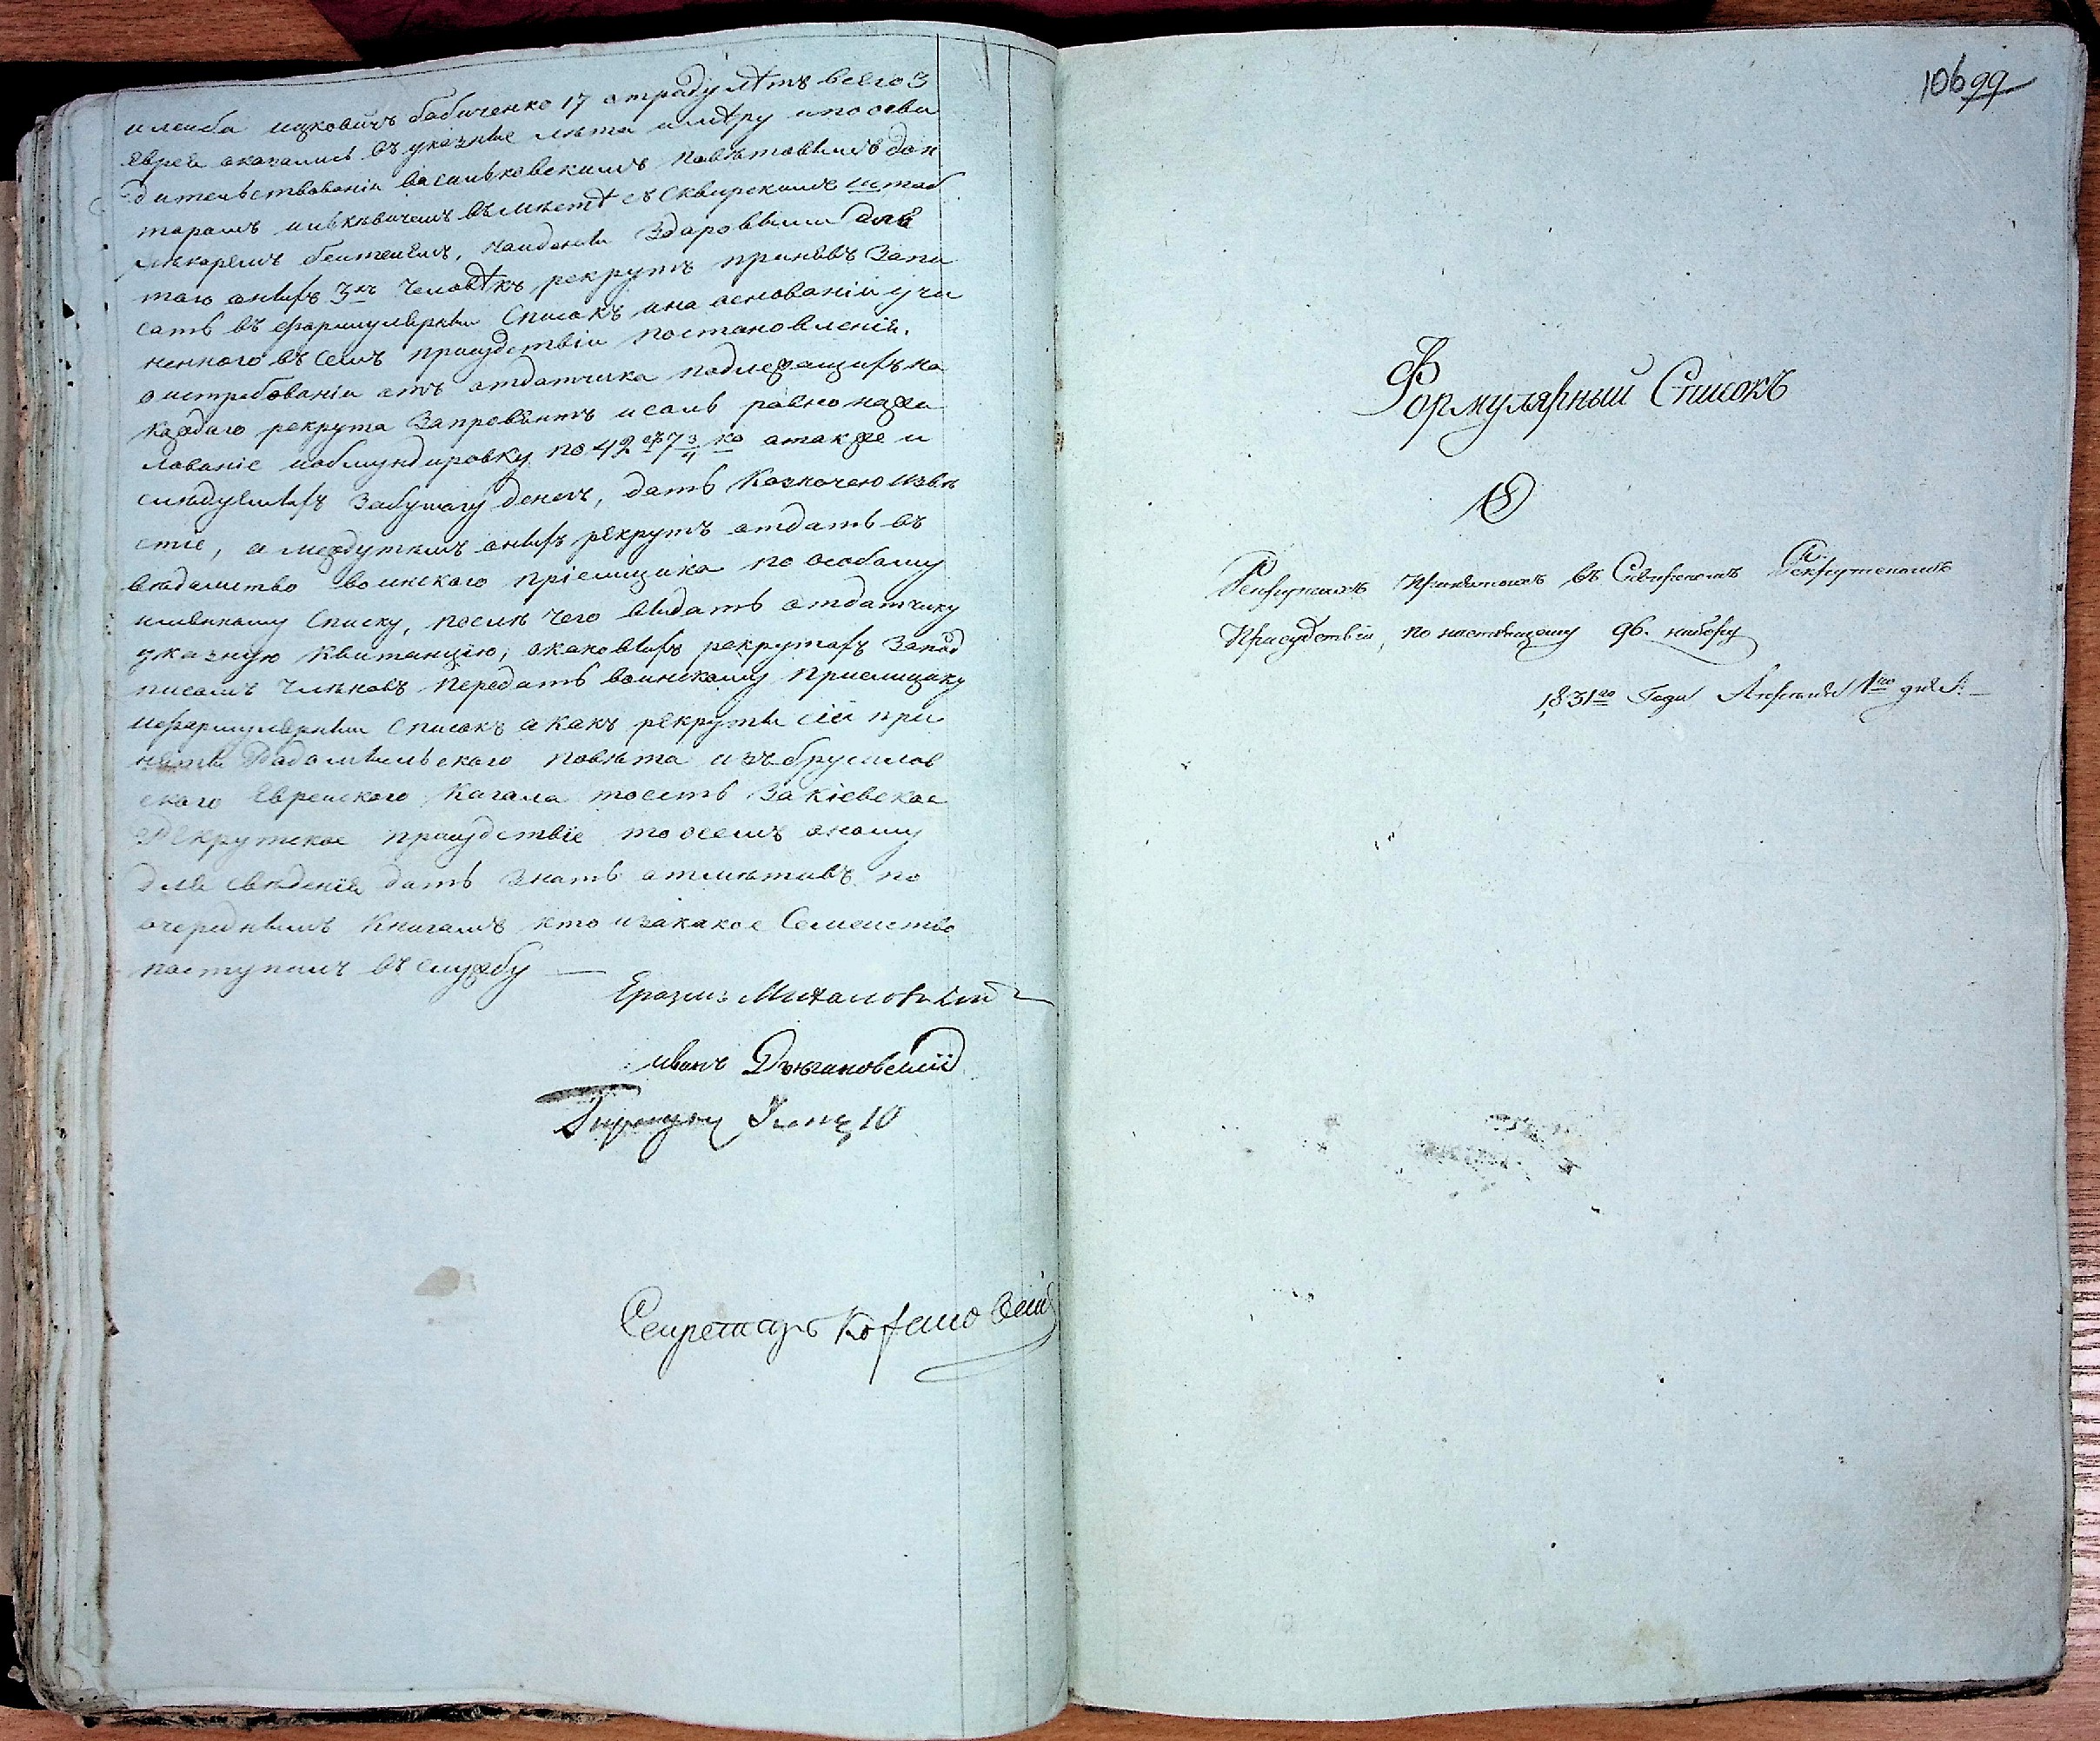 и лейба ицковичъ бабиченко 17 отраду лѣтъ всего 3
Евреи оказались въ указные лѣта и мѣру и по осви
дительствованіи васильковскимъ повѣтовымъ док
торомъ вмѣстѣ съ Сквирскимъ штаб
лѣкаремъ найдены здоровыми для
того оныхъ 3хъ человѣкъ рекрутъ принявъ запи
сать въ формулярный списокъ и на основаніи учи
ненного въ семъ присудствіи постановленія.
о истребованіи отъ отдатчика подлежащихъ на
каждаго рекрута запровѣянтъ исоль равно на жа
лованіе и обмундировку по 42 а также и
слѣдуемыхъ забумагу денегъ, дать Казначею извѣ
стіе, а между тѣмъ оныхъ рекрутъ отдать въ
вѣдомство воинского пріемщика по особому
имянному списку, послѣ чего выдать отдатчику
указную квитанцію, о каковыхъ рекрутахъ за под
писомъ членовъ передать воинскому приемщику
и формулярный списокъ а какъ рекруты сіи при
няты Радомысльского повѣта изъ брусилов
ского Еврейского Кагала тоесть за кіевское
Рекрутское присудствіе то о семъ оному
для свѣденія дать знать отмѣтивъ по
очереднымъ книгамъ кто и за какое Семейство
поступилъ въ службу —
Еразмъ Михаловскій
иванъ
Секретарь
106 99
Формулярный Списокъ
О
Рекрутахъ принятыхъ въ Сквирскомъ Рекрутскомъ
Присудствіи, по настоящему 96. набору
1831го Года Апреля 1го дня.